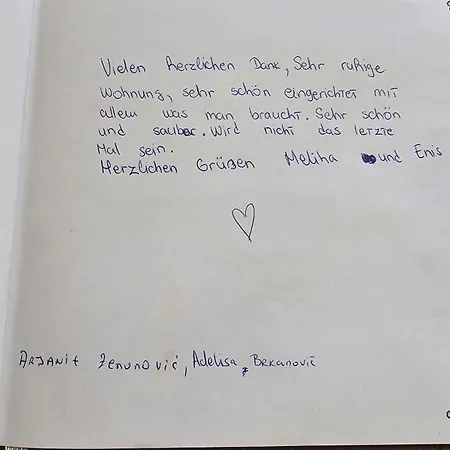 Vielen herzlichen Dank, Sehr ruhige
Wohnung, sehr schön eingerichtet mit
allem was man braucht. Sehr schön
und sauber. Wird nicht das letzte
Mal sein.
Herzlichen Grüßen Meliha und Enis
Arjanit Zenunović, Adelisa, Brkanović